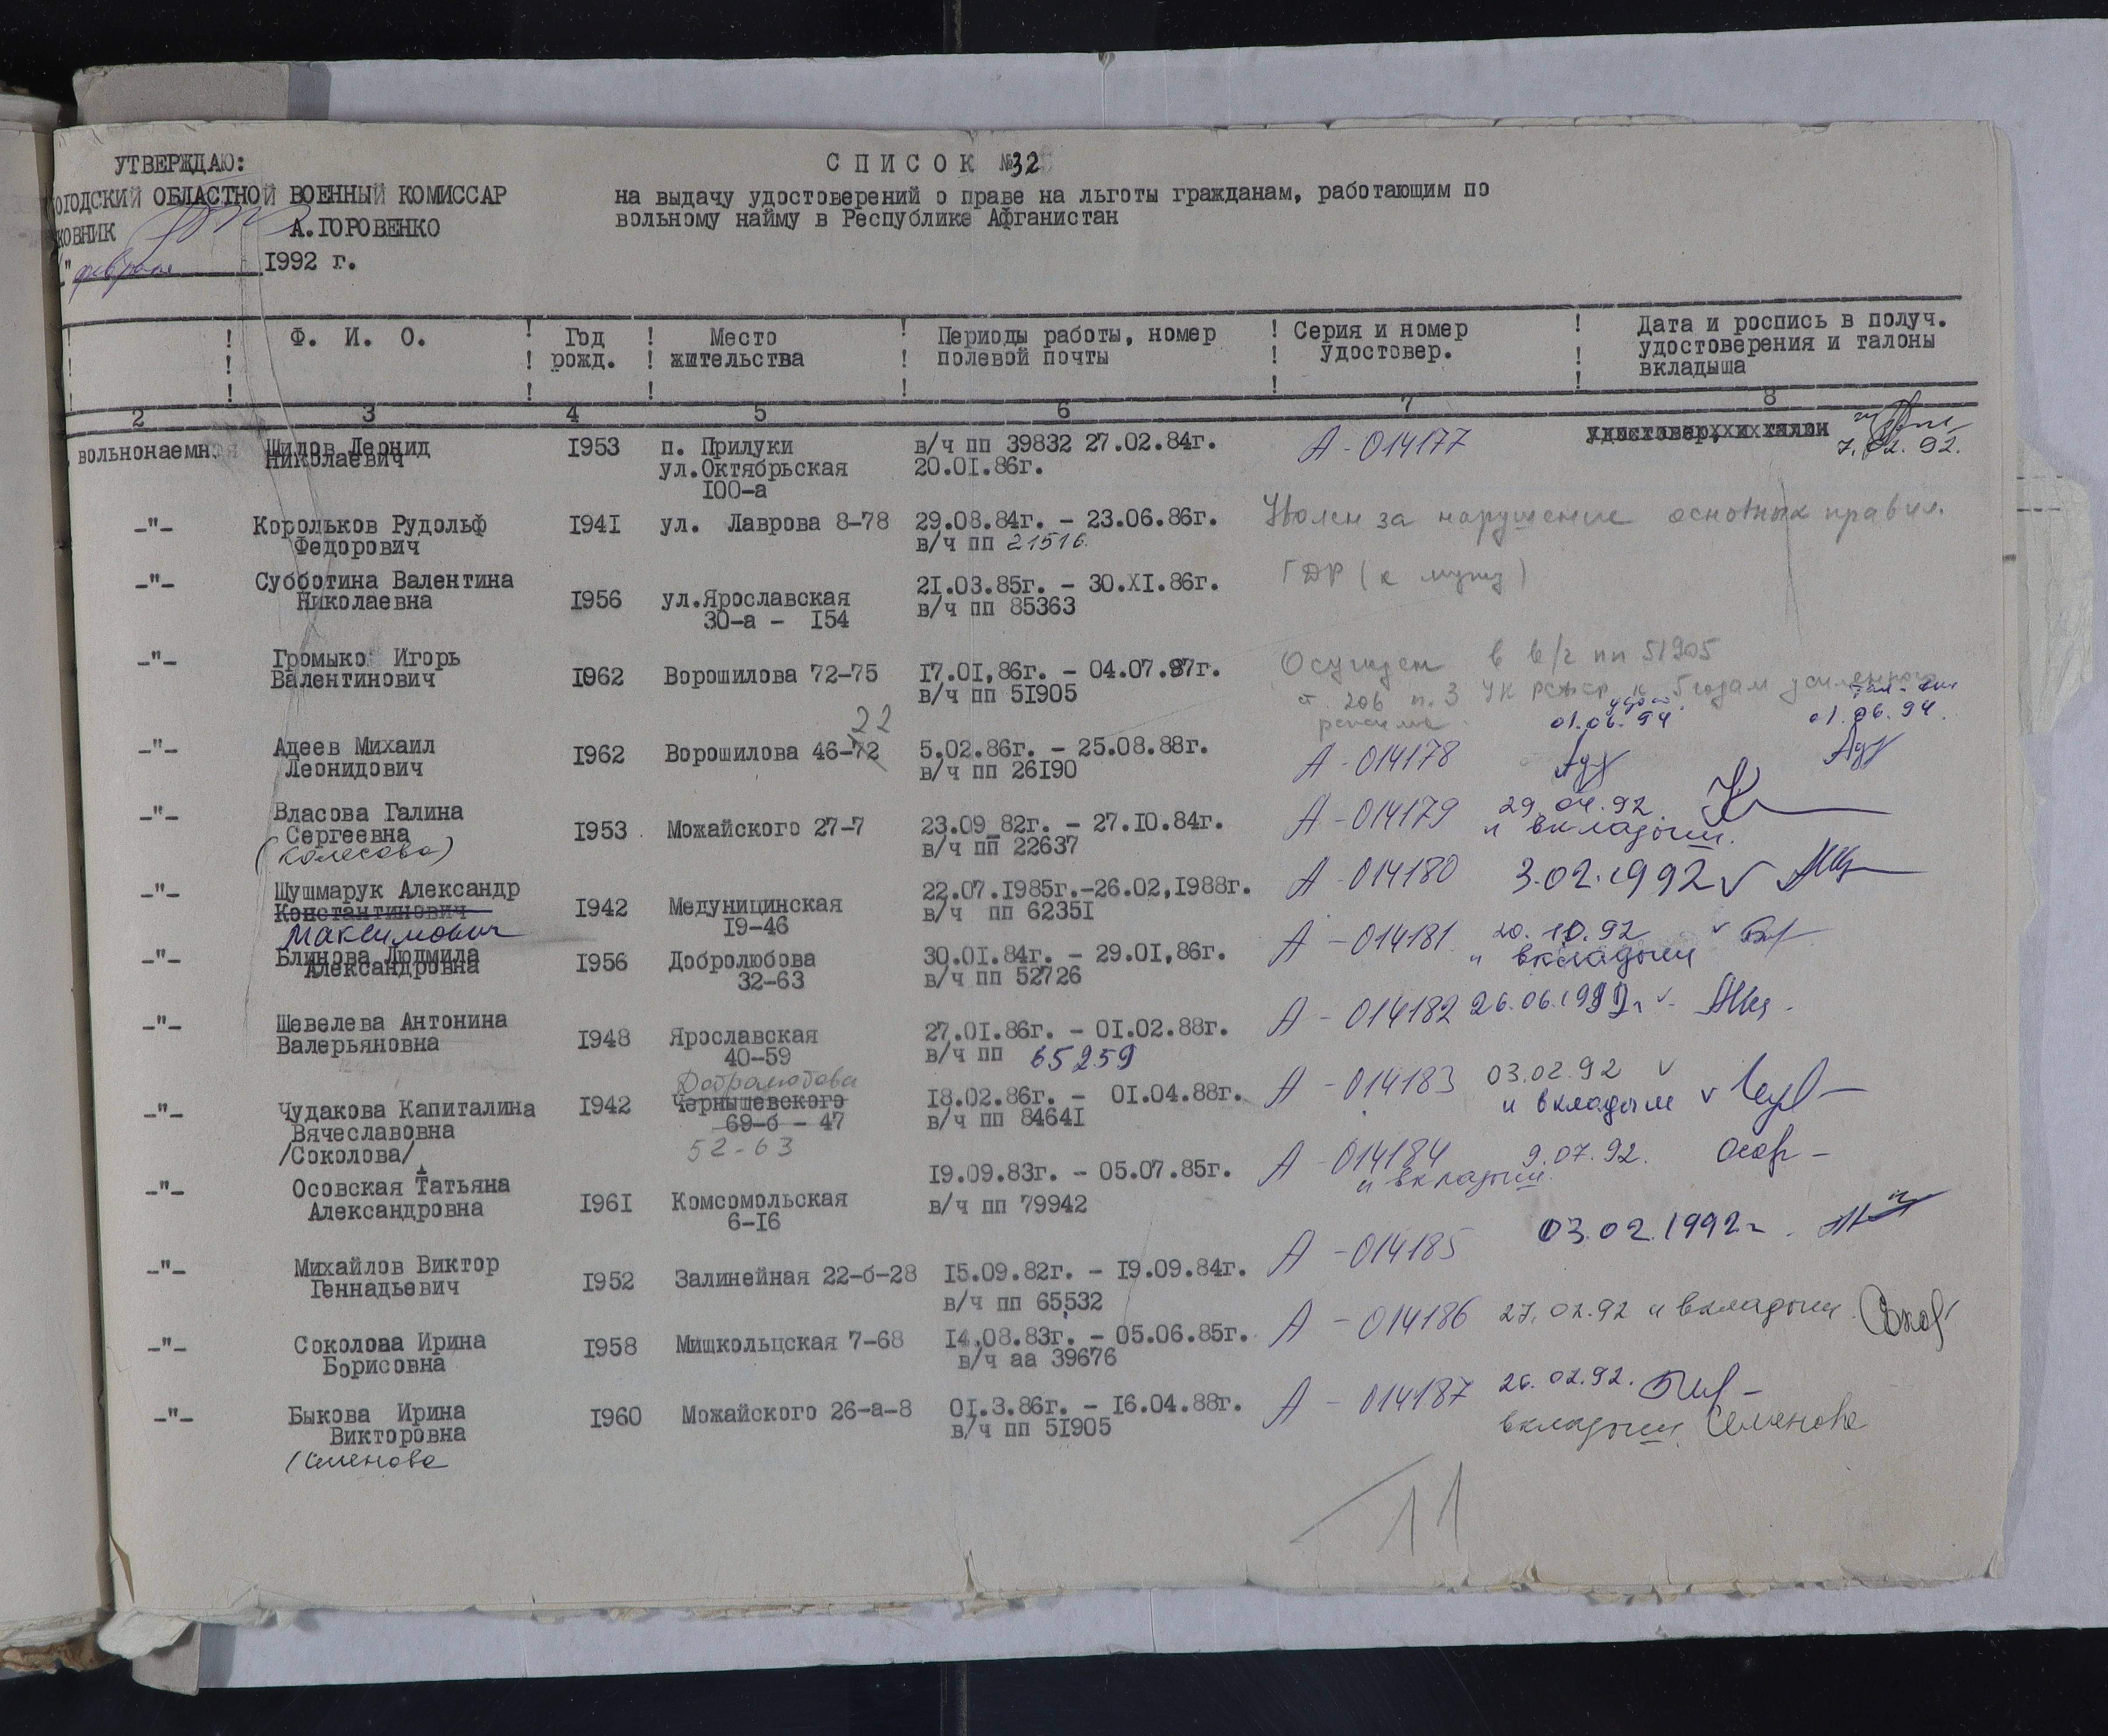 УТВЕРЖДАЮ:
ОГОДСКИЙ ОБЛАСТНОЙ ВОЕННЫЙ КОМИССАР
КОВНИК А.ГОРОВЕНКО
" февраля 1992 г.
С П И С О К №32
на выдачу удостоверений о праве на льготы гражданам, работающим по
вольному найму в Республике Афганистан
! Ф. И. О. ! Год ! Место ! Периоды работы, номер ! Серия и номер ! Дата и роспись в получ.
! ! рожд. ! жительства ! полевой почты ! удостовер. ! удостоверения и талоны
вкладыша
2 3 4 5 6 7 8
вольнонаемн. Шилов Леонид I953 п. Прилуки в/ч пп 39832 27.02.84г. А - 014177 удостовер, и талон
Николаевич ул.Октябрьская 20.0I.86г. 7.02.92.
I00-а
-"- Корольков Рудольф I94I ул. Лаврова 8-78 29.08.84г. - 23.06.86г. Уволен за нарушение основных правил.
Федорович в/ч пп 21516
-"- Субботина Валентина 2I.03.85г. - 30.XI.86г. ГДР (к мужу)
Николаевна I956 ул.Ярославская в/ч пп 85363
30-а - I54
-"- Громыко Игорь I962 Ворошилова 72-75 I7.0I,86г. - 04.07.87г. Осужден в в/ч пп 51905
Валентинович в/ч пп 5I905 ст. 206 п.3 УК РСФСР к 5 годам усиленного
режима
22 удост. 01.06.94 01.06.94
-"- Адеев Михаил I962 Ворошилова 46-72 5.02.86г. - 25.08.88г. А - 014178
Леонидович в/ч пп 26I90
-"- Власова Галина А - 014179 29.04.92.
Сергеевна I953 Можайского 27-7 23.09_82г. - 27.I0.84г. и вкладыш.
(Колесова) в/ч пп 22637
-"- Шушмарук Александр 22.07.I985г.-26.02,I988г. А - 014180 3.02.1992
Константинович I942 Медуницинская в/ч пп 6235I
Максимович I9-46
-"- Блинова Людмила I956 Добролюбова 30.0I.84г. - 29.0I,86г. А - 014181 20.10.92
Александровна 32-63 в/ч пп 52726 и вкладыш
-"- Шевелева Антонина I948 Ярославская 27.0I.86г. - 0I.02.88г. А - 014182 26.06.1992г
Валерьяновна 40-59 в/ч пп 65259
Добролюбова
-"- Чудакова Капиталина I942 Чернышевского I8.02.86г. - 0I.04.88г. А - 014183 03.02.92
Вячеславовна 69-б - 47 в/ч пп 8464I и вкладыш
/Соколова/ 52-63
-"- Осовская Татьяна I9.09.83г. - 05.07.85г. А - 014184 9.07.92.
Александровна I96I Комсомольская в/ч пп 79942 и вкладыш.
6-I6
-"- Михайлов Виктор I952 Залинейная 22-б-28 I5.09.82г. - I9.09.84г. А - 014185 03.02.1992г.
Геннадьевич в/ч пп 65532
-"- Соколова Ирина I958 Мишкольцская 7-68 I4,08.83г. - 05.06.85г. А - 014186 27.02.92 и вкладыш.
Борисовна в/ч аа 39676
-"- Быкова Ирина I960 Можайского 26-а-8 0I.3.86г. - I6.04.88г. А - 014187 26.02.92.
Викторовна в/ч пп 5I905 вкладыш Семенова
(Семенова
11